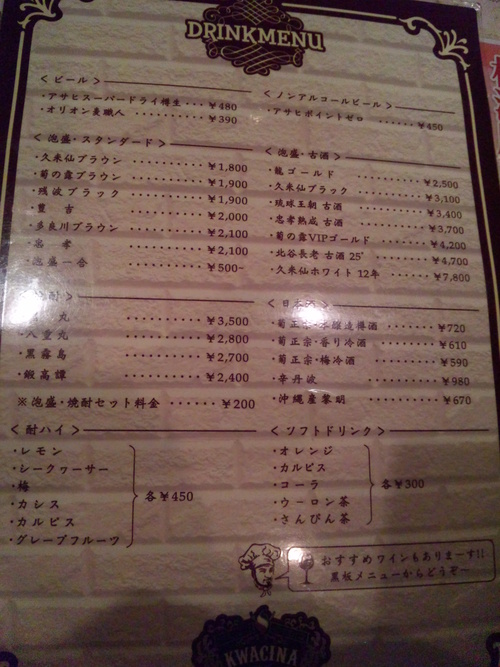 DRINKMENU
＜ビール＞
・アサヒスーパードライ樽生 ････ ￥480
・オリオン麦職人 ･･････････ ￥390
＜ノンアルコールビール＞
・アサヒポイントゼロ ･･････ ￥450
＜泡盛・スタンダード＞
・久米仙ブラウン ･･････････ ￥1,800
・菊の露ブラウン ･･････････ ￥1,900
・残波ブラック ･･････････ ￥1,900
・豊 吉 ･･････････ ￥2,000
・多良川ブラウン ･･････････ ￥2,100
・忠 孝 ･･････････ ￥2,100
・泡盛一合 ･･････････ ￥500−
＜泡盛・古酒＞
・龍ゴールド ･･････････ ￥2,500
・久米仙ブラック ･･････････ ￥3,100
・琉球王朝 古酒 ･･････････ ￥3,400
・忠孝熟成 古酒 ･･････････ ￥3,700
・菊の露VIPゴールド ･･････ ￥4,200
・北谷長老 古酒 25° ･･････ ￥4,700
・久米仙ホワイト 12年 ･･････ ￥7,800
酎＞
丸 ･･････････ ￥3,500
・八重丸 ･･････････ ￥2,800
・黒霧島 ･･････････ ￥2,700
・鍛高譚 ･･････････ ￥2,400
※泡盛・焼酎セット料金 ･･････ ￥200
＜日本酒＞
・菊正宗・本醸造樽酒 ･･････ ￥720
・菊正宗・香り冷酒 ･･････ ￥610
・菊正宗・梅冷酒 ･･････ ￥590
・辛丹波 ･･････････ ￥980
・沖縄産黎明 ･･････････ ￥670
＜酎ハイ＞
・レモン
・シークヮーサー
・梅
・カシス
・カルピス
・グレープフルーツ
各￥450
＜ソフトドリンク＞
・オレンジ
・カルピス
・コーラ
・ウーロン茶
・さんぴん茶
各￥300
おすすめワインもありまーす!!
黒板メニューからどうぞ〜
KWACINA